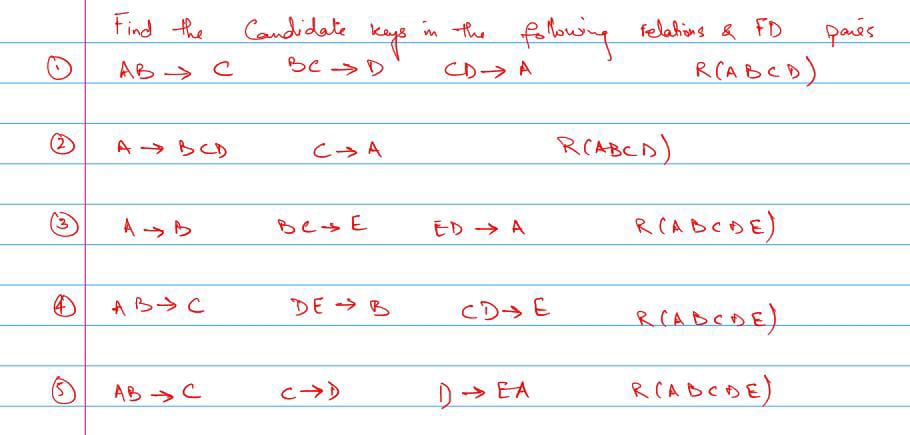 Find the Candidate keys in the following relations & FD pairs
① AB → C BC → D CD → A R(ABCD)
② A → BCD C → A R(ABCD)
③ A → B BC → E ED → A R(ABCDE)
④ AB → C DE → B CD → E R(ABCDE)
⑤ AB → C C → D D → EA R(ABCDE)